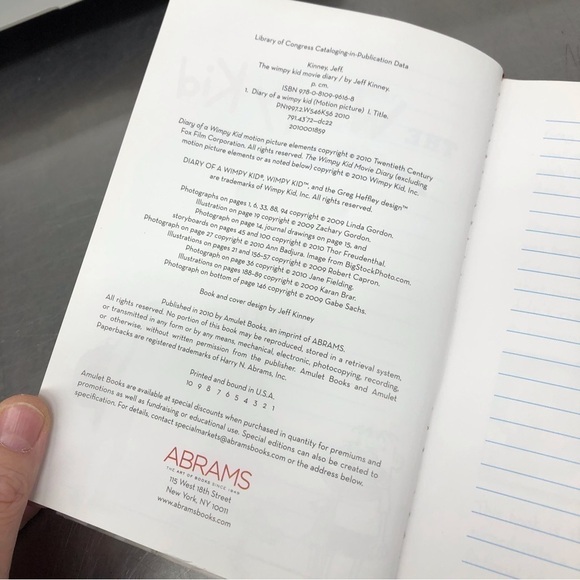 Library of Congress Cataloging-in-Publication Data
Kinney, Jeff.
The wimpy kid movie diary / by Jeff Kinney.
p. cm.
ISBN 978-0-8109-9616-8
1. Diary of a wimpy kid (Motion picture) I. Title.
PN1997.2.W546K56 2010
791.43'72—dc22
2010001859
Diary of a Wimpy Kid motion picture elements copyright © 2010 Twentieth Century
Fox Film Corporation. All rights reserved. The Wimpy Kid Movie Diary (excluding
motion picture elements or as noted below) copyright © 2010 Wimpy Kid, Inc.
DIARY OF A WIMPY KID®, WIMPY KID™, and the Greg Heffley design™
are trademarks of Wimpy Kid, Inc. All rights reserved.
Photographs on pages 1, 6, 33, 88, 94 copyright © 2009 Linda Gordon.
Illustration on page 19 copyright © 2009 Zachary Gordon.
Photograph on page 14, journal drawings on page 15, and
storyboards on pages 45 and 100 copyright © 2010 Thor Freudenthal.
Photograph on page 27 copyright © 2010 Ann Badjura. Image from BigStockPhoto.com.
Illustrations on pages 21 and 156–57 copyright © 2009 Robert Capron.
Photograph on page 36 copyright © 2010 Jane Fielding.
Illustrations on pages 188–89 copyright © 2009 Karan Brar.
Photograph on bottom of page 146 copyright © 2009 Gabe Sachs.
Book and cover design by Jeff Kinney
Published in 2010 by Amulet Books, an imprint of ABRAMS.
All rights reserved. No portion of this book may be reproduced, stored in a retrieval system,
or transmitted in any form or by any means, mechanical, electronic, photocopying, recording,
or otherwise, without written permission from the publisher. Amulet Books and Amulet
Paperbacks are registered trademarks of Harry N. Abrams, Inc.
Printed and bound in U.S.A.
10 9 8 7 6 5 4 3 2 1
Amulet Books are available at special discounts when purchased in quantity for premiums and
promotions as well as fundraising or educational use. Special editions can also be created to
specification. For details, contact specialmarkets@abramsbooks.com or the address below.
ABRAMS
THE ART OF BOOKS SINCE 1949
115 West 18th Street
New York, NY 10011
www.abramsbooks.com